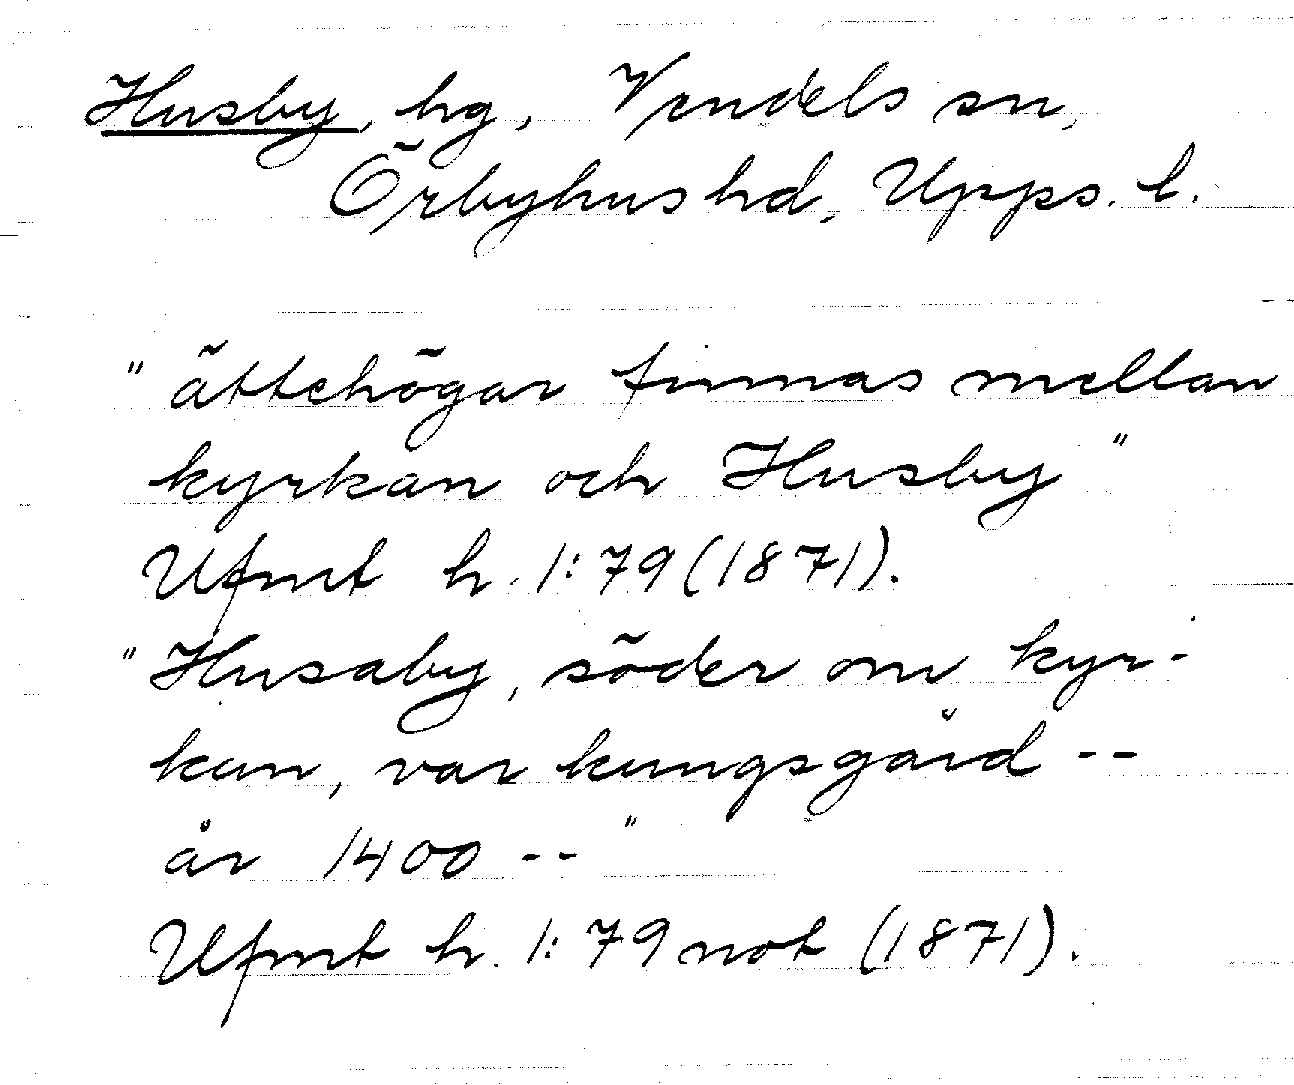 Husby, hg, Vendels sn,
Örbyhus hd, Upps. l.
"ättehögar finnas mellan
kyrkan och Husby"
Ufmt h. 1:79 (1871).
"Husaby, söder om kyr-
kan, var kungsgård --
år 1400 --"
Ufmt h. 1:79 not (1871).